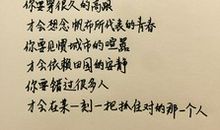 你要穿很久的高跟
才会想念帆布所代表的青春
你要见惯城市的喧嚣
才会依赖田园的安静
你要错过很多人
才会在某一刻一把抓住对的那一个人